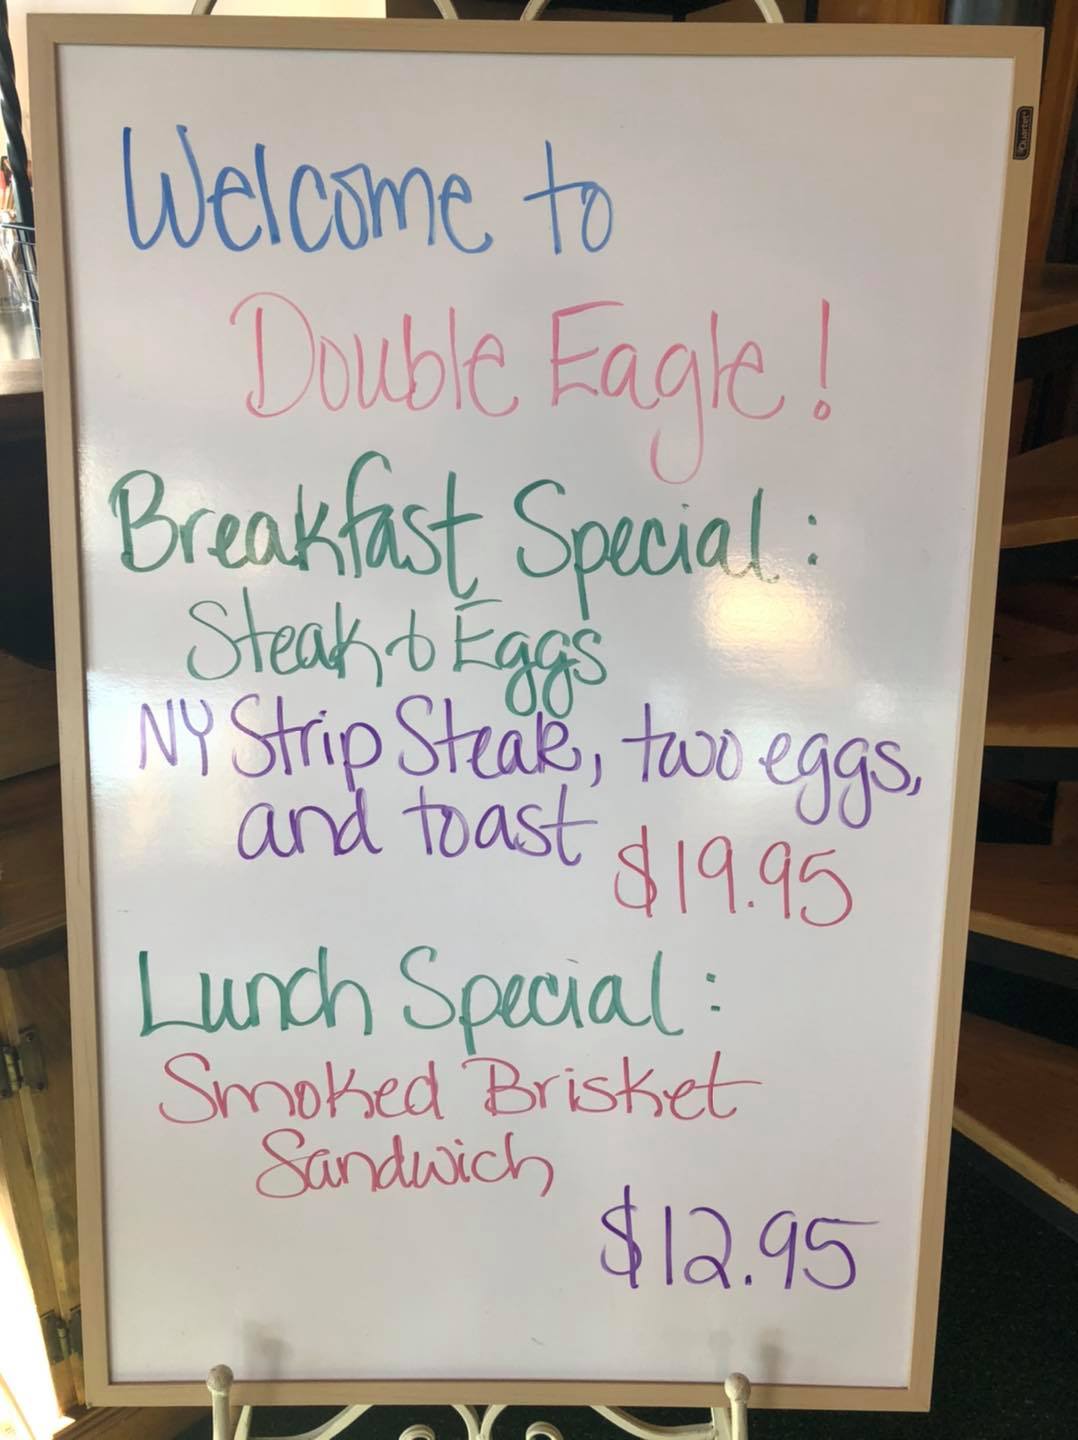 Welcome to
Double Eagle!
Breakfast Special:
Steak & Eggs
NY Strip Steak, two eggs,
and toast
$19.95
Lunch Special:
Smoked Brisket
Sandwich
$12.95
Quartet